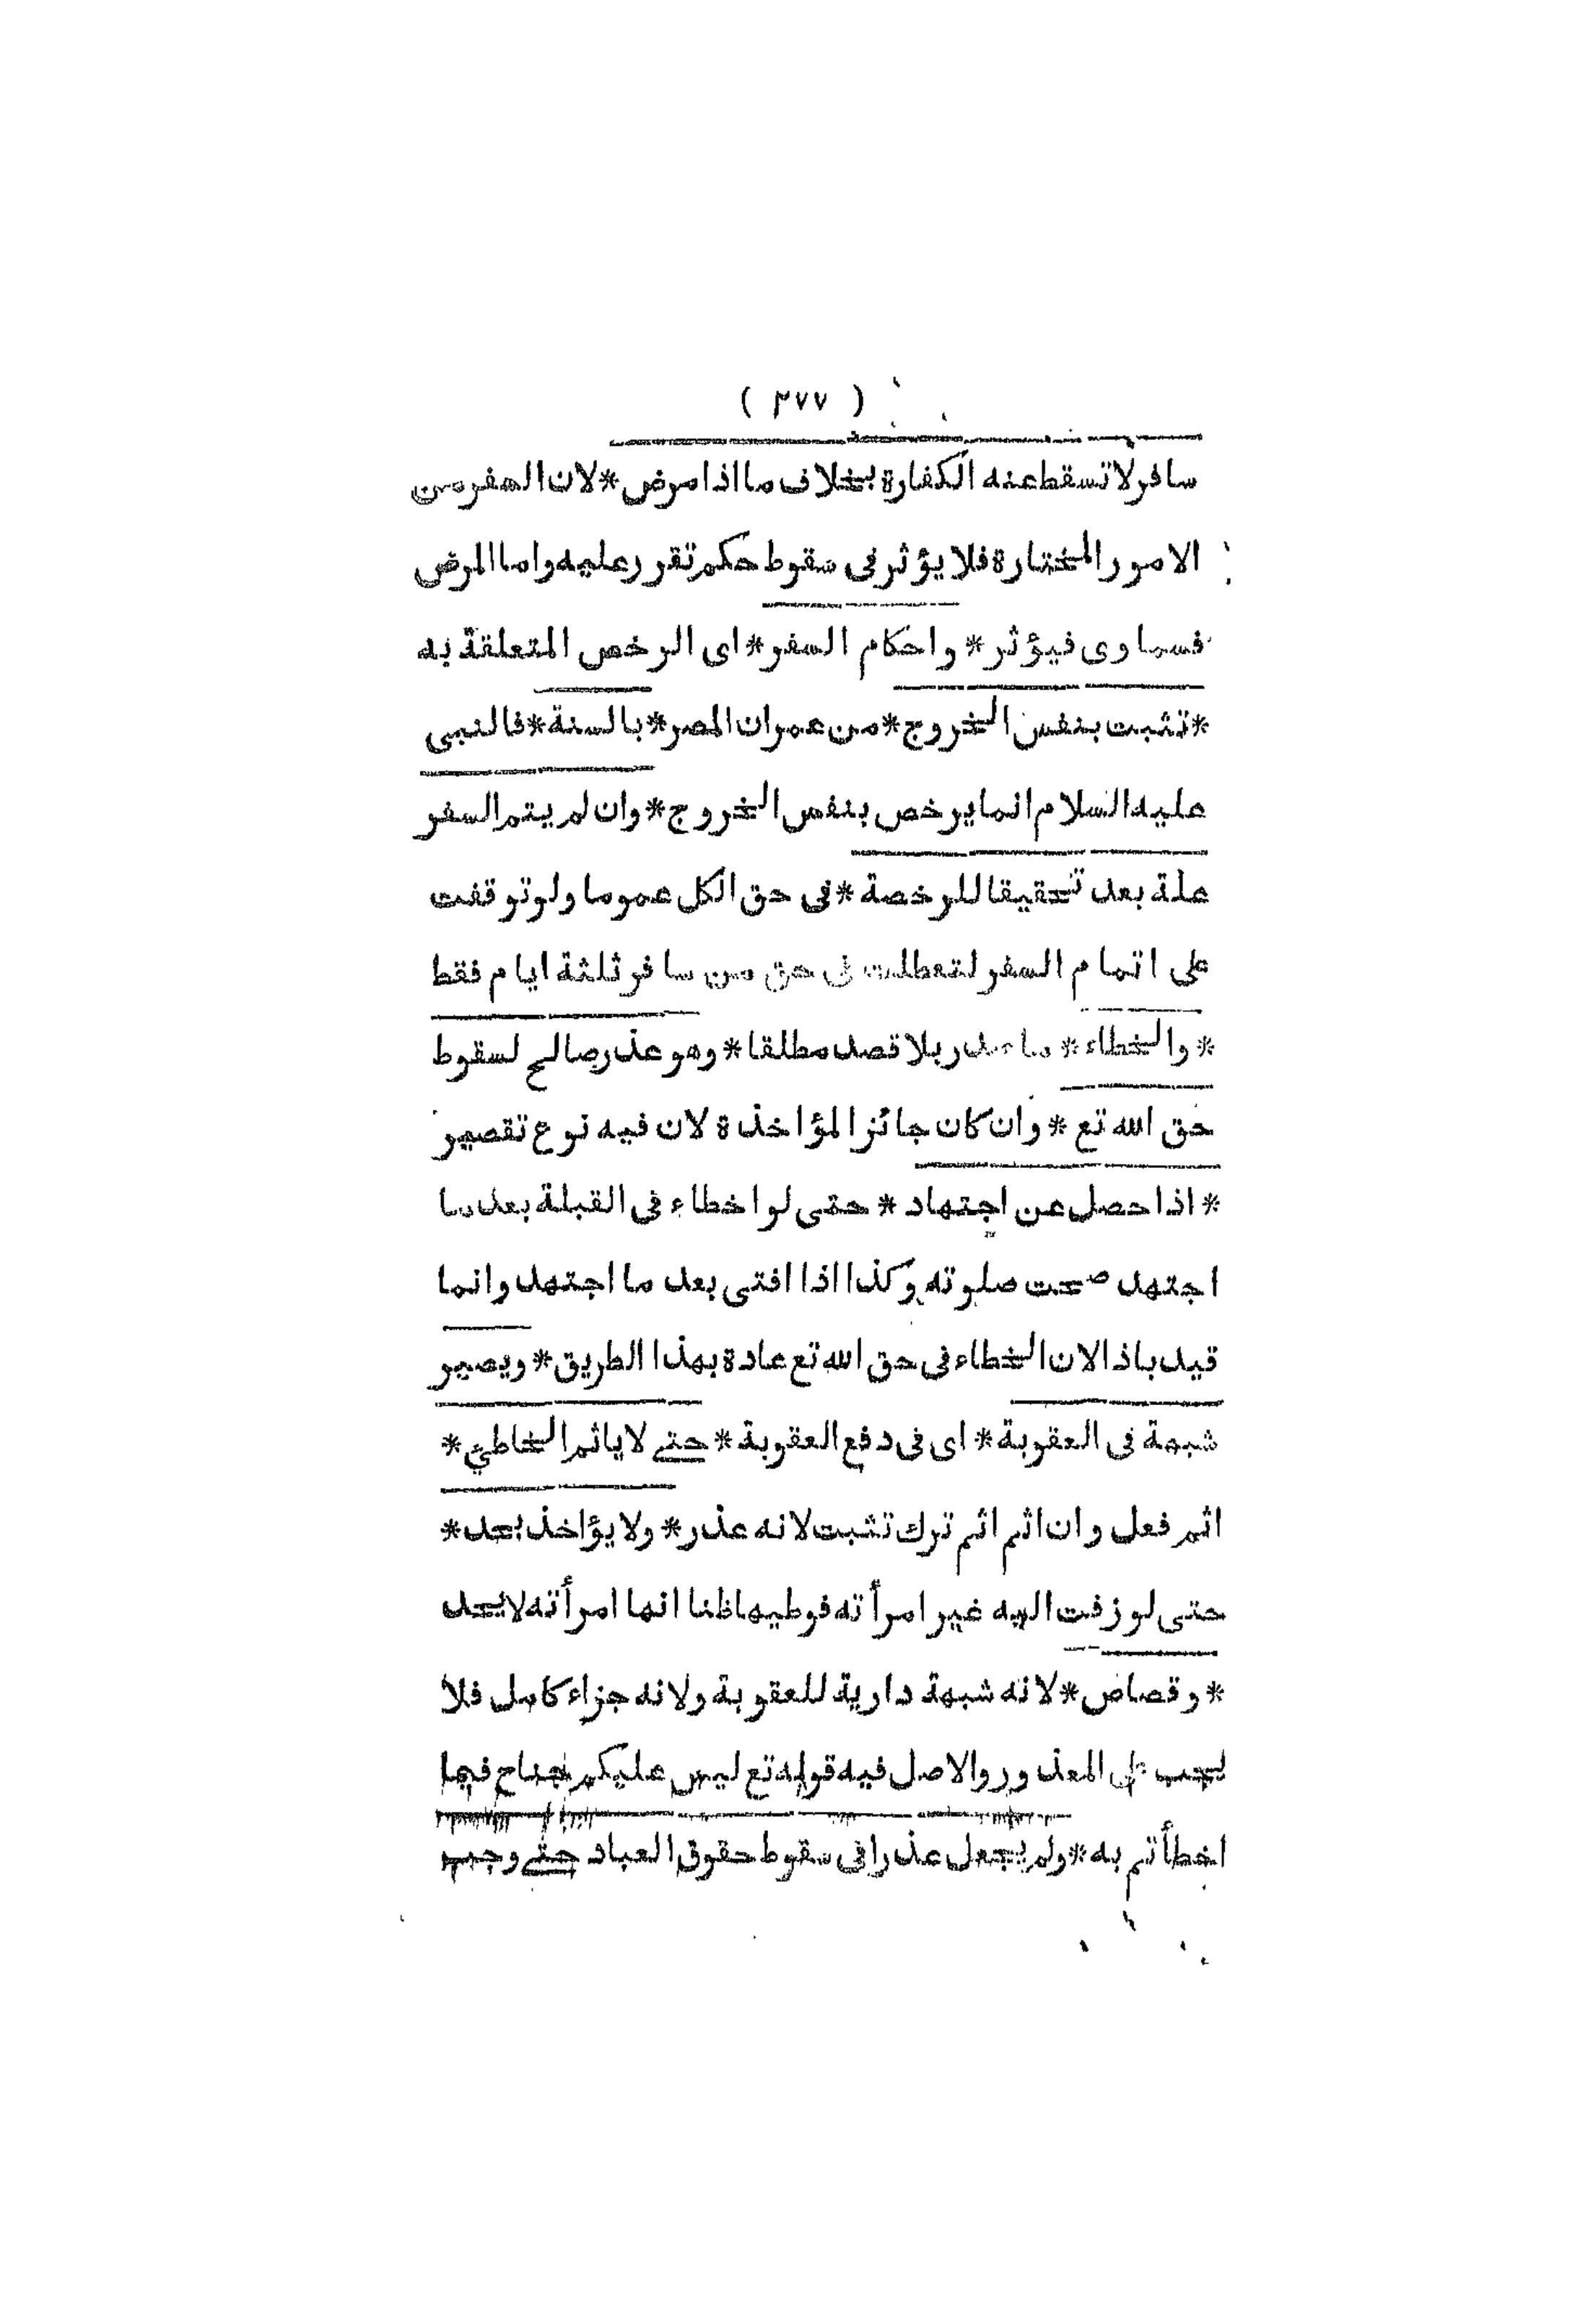 ( ٣٧٧ )
سافر لا تسقط عنه الكفارة بخلاف ما اذا مرض * لان السفر من
الامور المختارة فلا يؤثر فى سقوط حكم تقرر عليه واما المرض
فسماوى فيؤثر * واحكام السفر * اى الرخص المتعلقة به
* تثبت بنفس الخروج * من عمران المصر * بالسنة * فالنبى
عليه السلام انما يرخص بنفس الخروج * وان لم يتم السفر
علة بعد تحقيقا للرخصة * فى حق الكل عموما ولو توقفت
على اتمام السفر لتعطلت فى حق من سافر ثلثة ايام فقط
* والخطاء * ما صدر بلا قصد مطلقا * وهو عذر صالح لسقوط
حق الله تع * وان كان جائز المؤاخذة لان فيه نوع تقصير
* اذا حصل عن اجتهاد * حتى لو اخطاء فى القبلة بعد ما
اجتهد صحت صلوته وكذا اذا افتى بعد ما اجتهد وانما
قيد باذا لان الخطاء فى حق الله تع عادة بهذا الطريق * ويصير
شبهة فى العقوبة * اى فى دفع العقوبة * حتے لا ياثم الخاطئ *
اثم فعل وان اثم اثم ترك تثبت لانه عذر * ولا يؤاخذ بحد *
حتى لو زفت اليه غير امرأته فوطيها ظنا انها امرأته لا يحد
* وقصاص * لانه شبهة دارية للعقوبة ولانه جزاء كامل فلا
يجب على المعذور والاصل فيه قوله تع ليس عليكم جناح فيما
اخطأتم به * ولم يجعل عذرا فى سقوط حقوق العباد حتے وجب